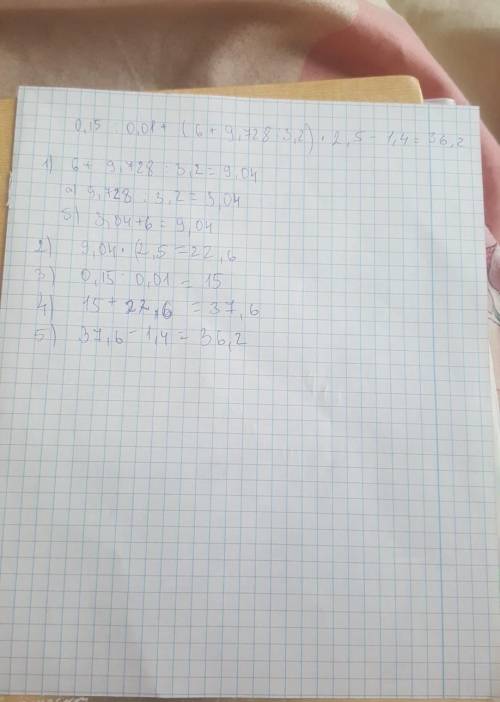 0,15 : 0,01 + (6 + 9,728 : 3,2) · 2,5 - 1,4 = 36,2
1) 6 + 9,728 : 3,2 = 9,04
а) 9,728 : 3,2 = 3,04
б) 3,04 + 6 = 9,04
2) 9,04 · (2,5 = 22,6
3) 0,15 : 0,01 = 15
4) 15 + 22,6 = 37,6
5) 37,6 - 1,4 = 36,2